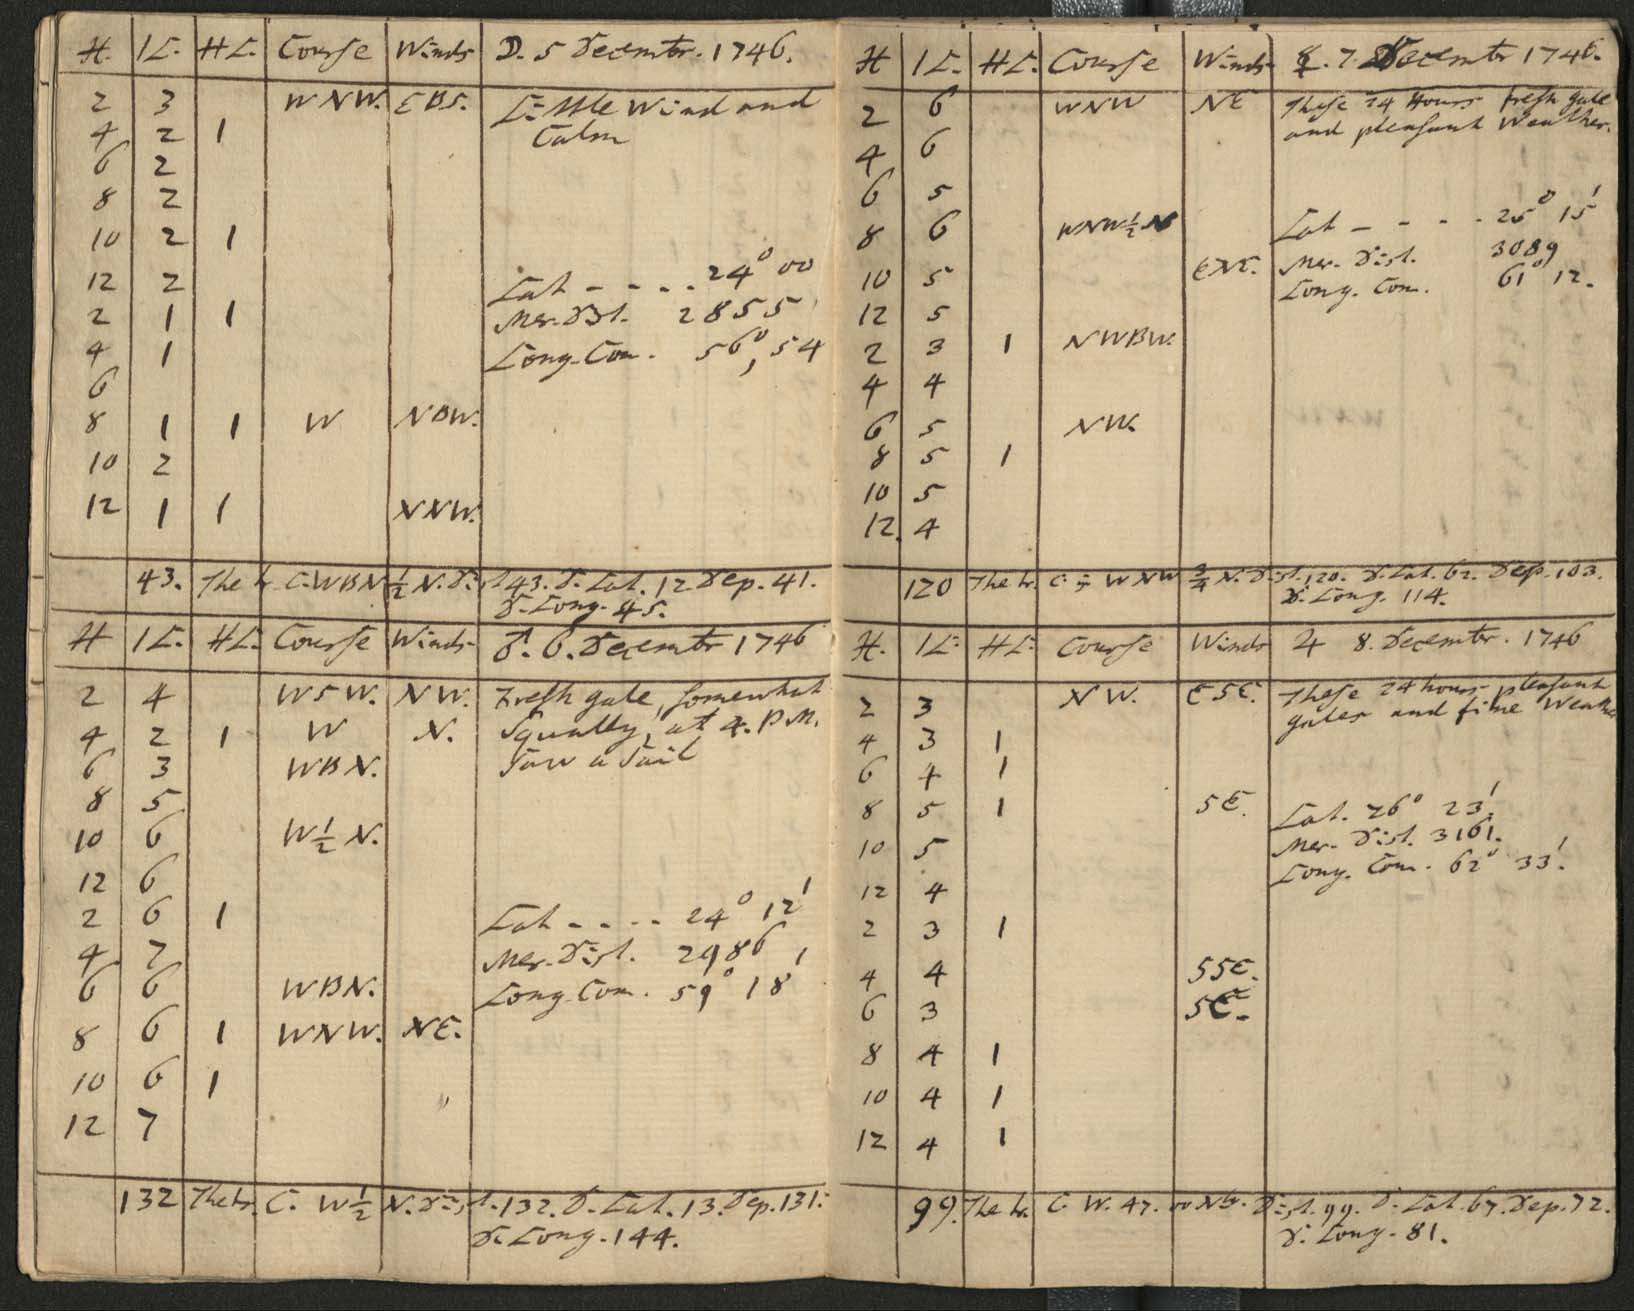 H. IL. HL. Course Winds D. 5 December. 1746.
2 3 WNW. EBS. Little Wind and
4 2 1 Calm
6 2
8 2
10 2 1
12 2 Lat - - - - 24° 00
2 1 1 Mer. Dist. 2855
4 1 Long. Com. 56°, 54
6
8 1 1 W NBW.
10 2
12 1 1 NNW.
43. The tr. C. WBN ½ N. Dist. 43. D. Lat. 12 Dep. 41.
D. Long. 45.
H IL. HL. Course Winds ♂. 6. December 1746
2 4 WSW. NW. Fresh gale, somewhat
4 2 1 W N. Squally, at 4. P.M.
6 3 WBN. Saw a Sail
8 5
10 6 W ½ N.
12 6
2 6 1 Lat - - - - 24° 12'
4 7 Mer. Dist. 2986
6 6 WBN. Long. Com. 59° 18'
8 6 1 WNW. NE.
10 6 1
12 7
132 The tr. C. W ½ N. Dist. 132. D. Lat. 13. Dep. 131.
D. Long. 144.
H IL. HL. Course Winds ☿. 7 December 1746.
2 6 WNW NE These 24 Hours fresh gale
4 6 and pleasant Weather.
6 5
8 6 WNW ½ N Lat - - - - 25° 15'
10 5 ENE. Mer. Dist. 3089
12 5 Long. Com. 61° 12.
2 3 1 NWBW.
4 4
6 5 NW.
8 5 1
10 5
12. 4
120 The tr. C. WNW ¾ N. Dist. 120. D. Lat. 62. Dep. 103.
D. Long. 114.
H. IL. HL. Course Winds ♃ 8. December. 1746
2 3 NW. ESE. These 24 hours pleasant
4 3 1 gales and fine Weathe
6 4 1
8 5 1 SE. Lat. 26° 23'.
10 5 Mer. Dist. 3161.
12 4 Long. Com. 62° 33'.
2 3 1
4 4 SSE.
6 3 SE.
8 4 1
10 4 1
12 4 1
99. The tr. C. W. 47. 00 N. Dist. 99. D. Lat. 67. Dep. 72.
D. Long. 81.